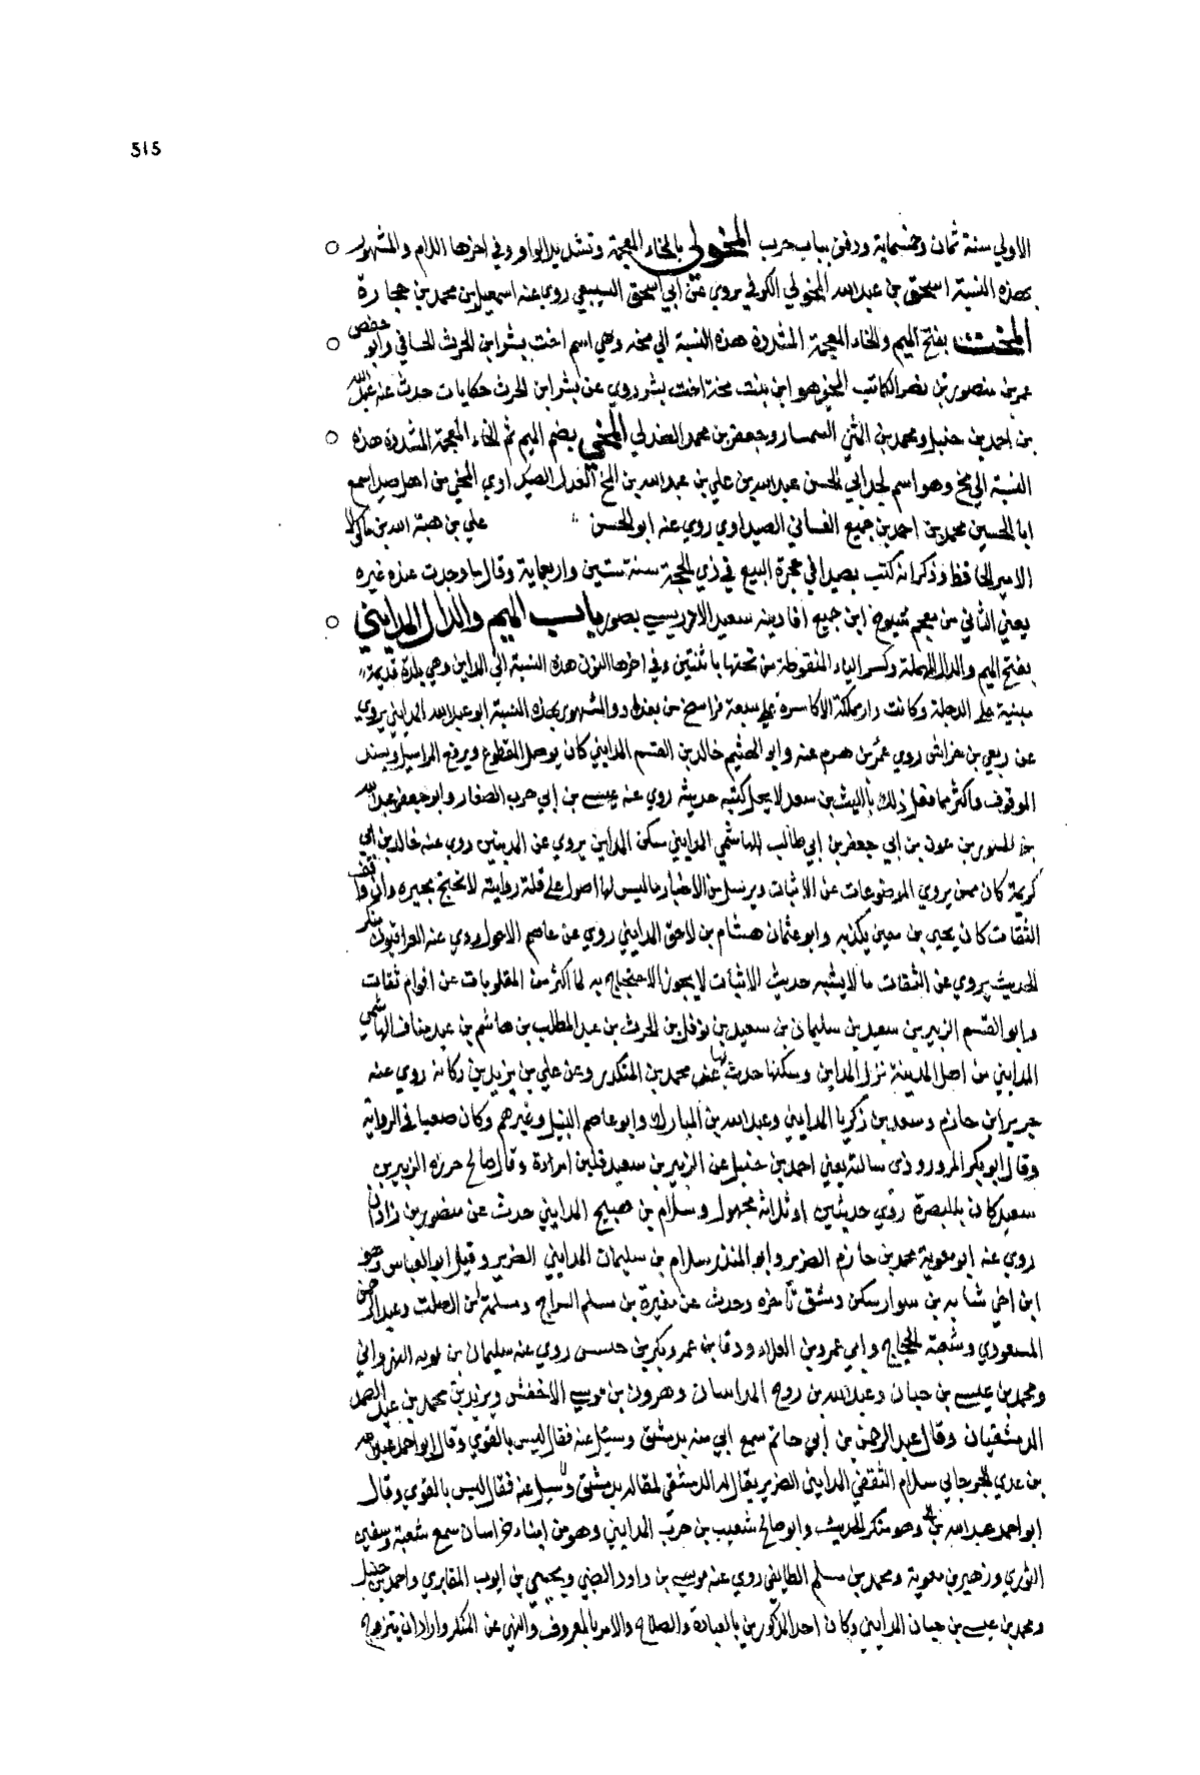 515
الاولي سنة ثمان وخمسماية ودفن بباب حرب المخولي بالخاء المعجمة وتشديد الواو وفي اخرها اللام والمشهور
بهذه النسبة اسحق بن عبد الله المخولي الكوفي يروي عن ابي اسحق السبيعي روي عنه اسمعيل بن محمد بن جحادة
المخي بفتح الميم والخاء المعجمة المشددة هذه النسبة الي مخه وهي اسم اخت بشر ابن الحرث الحافي وابو حفص
عمر بن منصور بن نصر الكاتب المخي هو ابن بنت مخة اخت بشر روي عن بشر ابن الحرث حكايات حدث عنه عبد الله
بن احمد بن حنبل ومحمد بن المثني السمسار وجعفر بن محمد الصندلي المخي بضم الميم ثم الخاء المعجمة المشددة هذه
النسبة الي مخ وهو اسم لجد ابي الحسن عبد الله بن علي بن عبد الله بن المخ العدل الصيداوي المخي من اهل صيدا سمع
ابا الحسين محمد بن احمد بن جميع الغساني الصيداوي روي عنه ابو الحسن علي بن هبة الله بن ماكولا
الامير الحافظ وذكر انه كتب بصيدا في حجرة البيع في ذي الحجة سنة ستين واربعماية وقال ما وجدت عنده غيره
يعني الثاني من معجم شيوخ ابن جميع افادينه سعيد الادريسي بصور باب الميم والدال المدايني
بفتح الميم والدال المهملة وكسر الياء المنقوطة من تحتها باثنتين وفي اخرها النون هذه النسبة الي المداين وهي بلدة قديمة
مبنية علي الدجلة وكانت دار مملكة الاكاسرة علي سبعة فراسخ من بغداد والمشهور بهذه النسبة ابو عبد الله المدايني يروي
عن ربعي بن حراش روي عمر بن هرم عنه وابو الهيثم خالد بن القسم المدايني كان يوصل المقطوع ويرفع المراسيل ويسند
الموقوف واكثر ما فعل ذلك بالليث بن سعد لا يحل كتبه حديثه روي عنه عيسي بن ابي حرب الصفار وابو جعفر عبد الله
بن المسور بن عون بن ابي جعفر بن ابي طالب الهاشمي المدايني سكن المداين يروي عن المدينين روي عنه خالد بن ابي
كريمة كان ممن يروي الموضوعات عن الاثبات ويرسل من الاخبار ما ليس لها اصول علي قلة روايته لا يحتج بخبره وان وافق
الثقات كان يحيي بن معين يكذبه وابو عثمان هشام بن لاحق المدايني روي عن عاصم الاحول روي عنه العراقيون منكر
الحديث يروي عن الثقات ما لا يشبه حديث الاثبات لا يجوز الاحتجاج به لما اكثر من المقلوبات عن اقوام ثقات
وابو القسم الزبير بن سعيد بن سليمان بن سعيد بن نوفل بن الحرث بن عبد المطلب بن هاشم بن عبد مناف الهاشمي
المدايني من اهل المدينة نزل المداين وسكنها حدث بها عن محمد بن المنكدر وعن علي بن يزيد بن ركانة روي عنه
جرير ابن حازم وسعد بن زكريا المدايني وعبد الله بن المبارك وابو عاصم النبيل وغيرهم وكان ضعيفا في الرواية
وقال ابو بكر المرورودي سالته يعني احمد بن حنبل عن الزبير بن سعيد فلين امره وقال صالح جزره الزبير بن
سعيد كان بالبصرة روي حديثين او ثلاثه مجهول وسلام بن صبيح المدايني حدث عن منصور بن زاذان
روي عنه ابو معوية محمد بن حازم الضرير وابو المنذر سلام بن سليمان المدايني الضرير وقيل ابو العباس وهو
ابن اخي شبابه بن سوار سكن دمشق باخره وحدث عن مغيرة بن مسلم السراج ومسلمة بن الصلت وعبد الرحمن
المسعودي وشعبة الحجاج وابي عمرو بن العلاء وورقا بن عمر وبكر بن خنيس روي عنه سليمان بن توبه النهرواني
ومحمد بن عيسي بن حيان وعبد الله بن روح المداينيان وهرون بن موسي الاخفش ويزيد بن محمد بن عبد الصمد
الدمشقيان وقال عبد الرحمن بن ابي حاتم سمع ابي منه بدمشق وسئل عنه فقال ليس بالقوي وقال ابو احمد عبد الله
بن عدي الجرجاني سلام الثقفي المدايني الضرير يقال له الدمشقي لمقاله بدمشق وسئل عنه فقال ليس بالقوي وقال
ابو احمد عبد الله بن وهو منكر الحديث وابو صالح شعيب بن حرب المدايني وهو من ابناء خراسان سمع شعبة وسفين
الثوري وزهير بن معوية ومحمد بن مسلم الطايفي روي عنه موسي بن داود الضبي ويحيي بن ايوب المقابري واحمد بن حنبل
ومحمد بن عيسي بن حيان المدايني وكان احد المذكورين بالعبادة والصلاح والامر بالمعروف والنهي عن المنكر واراد ان يتزوج